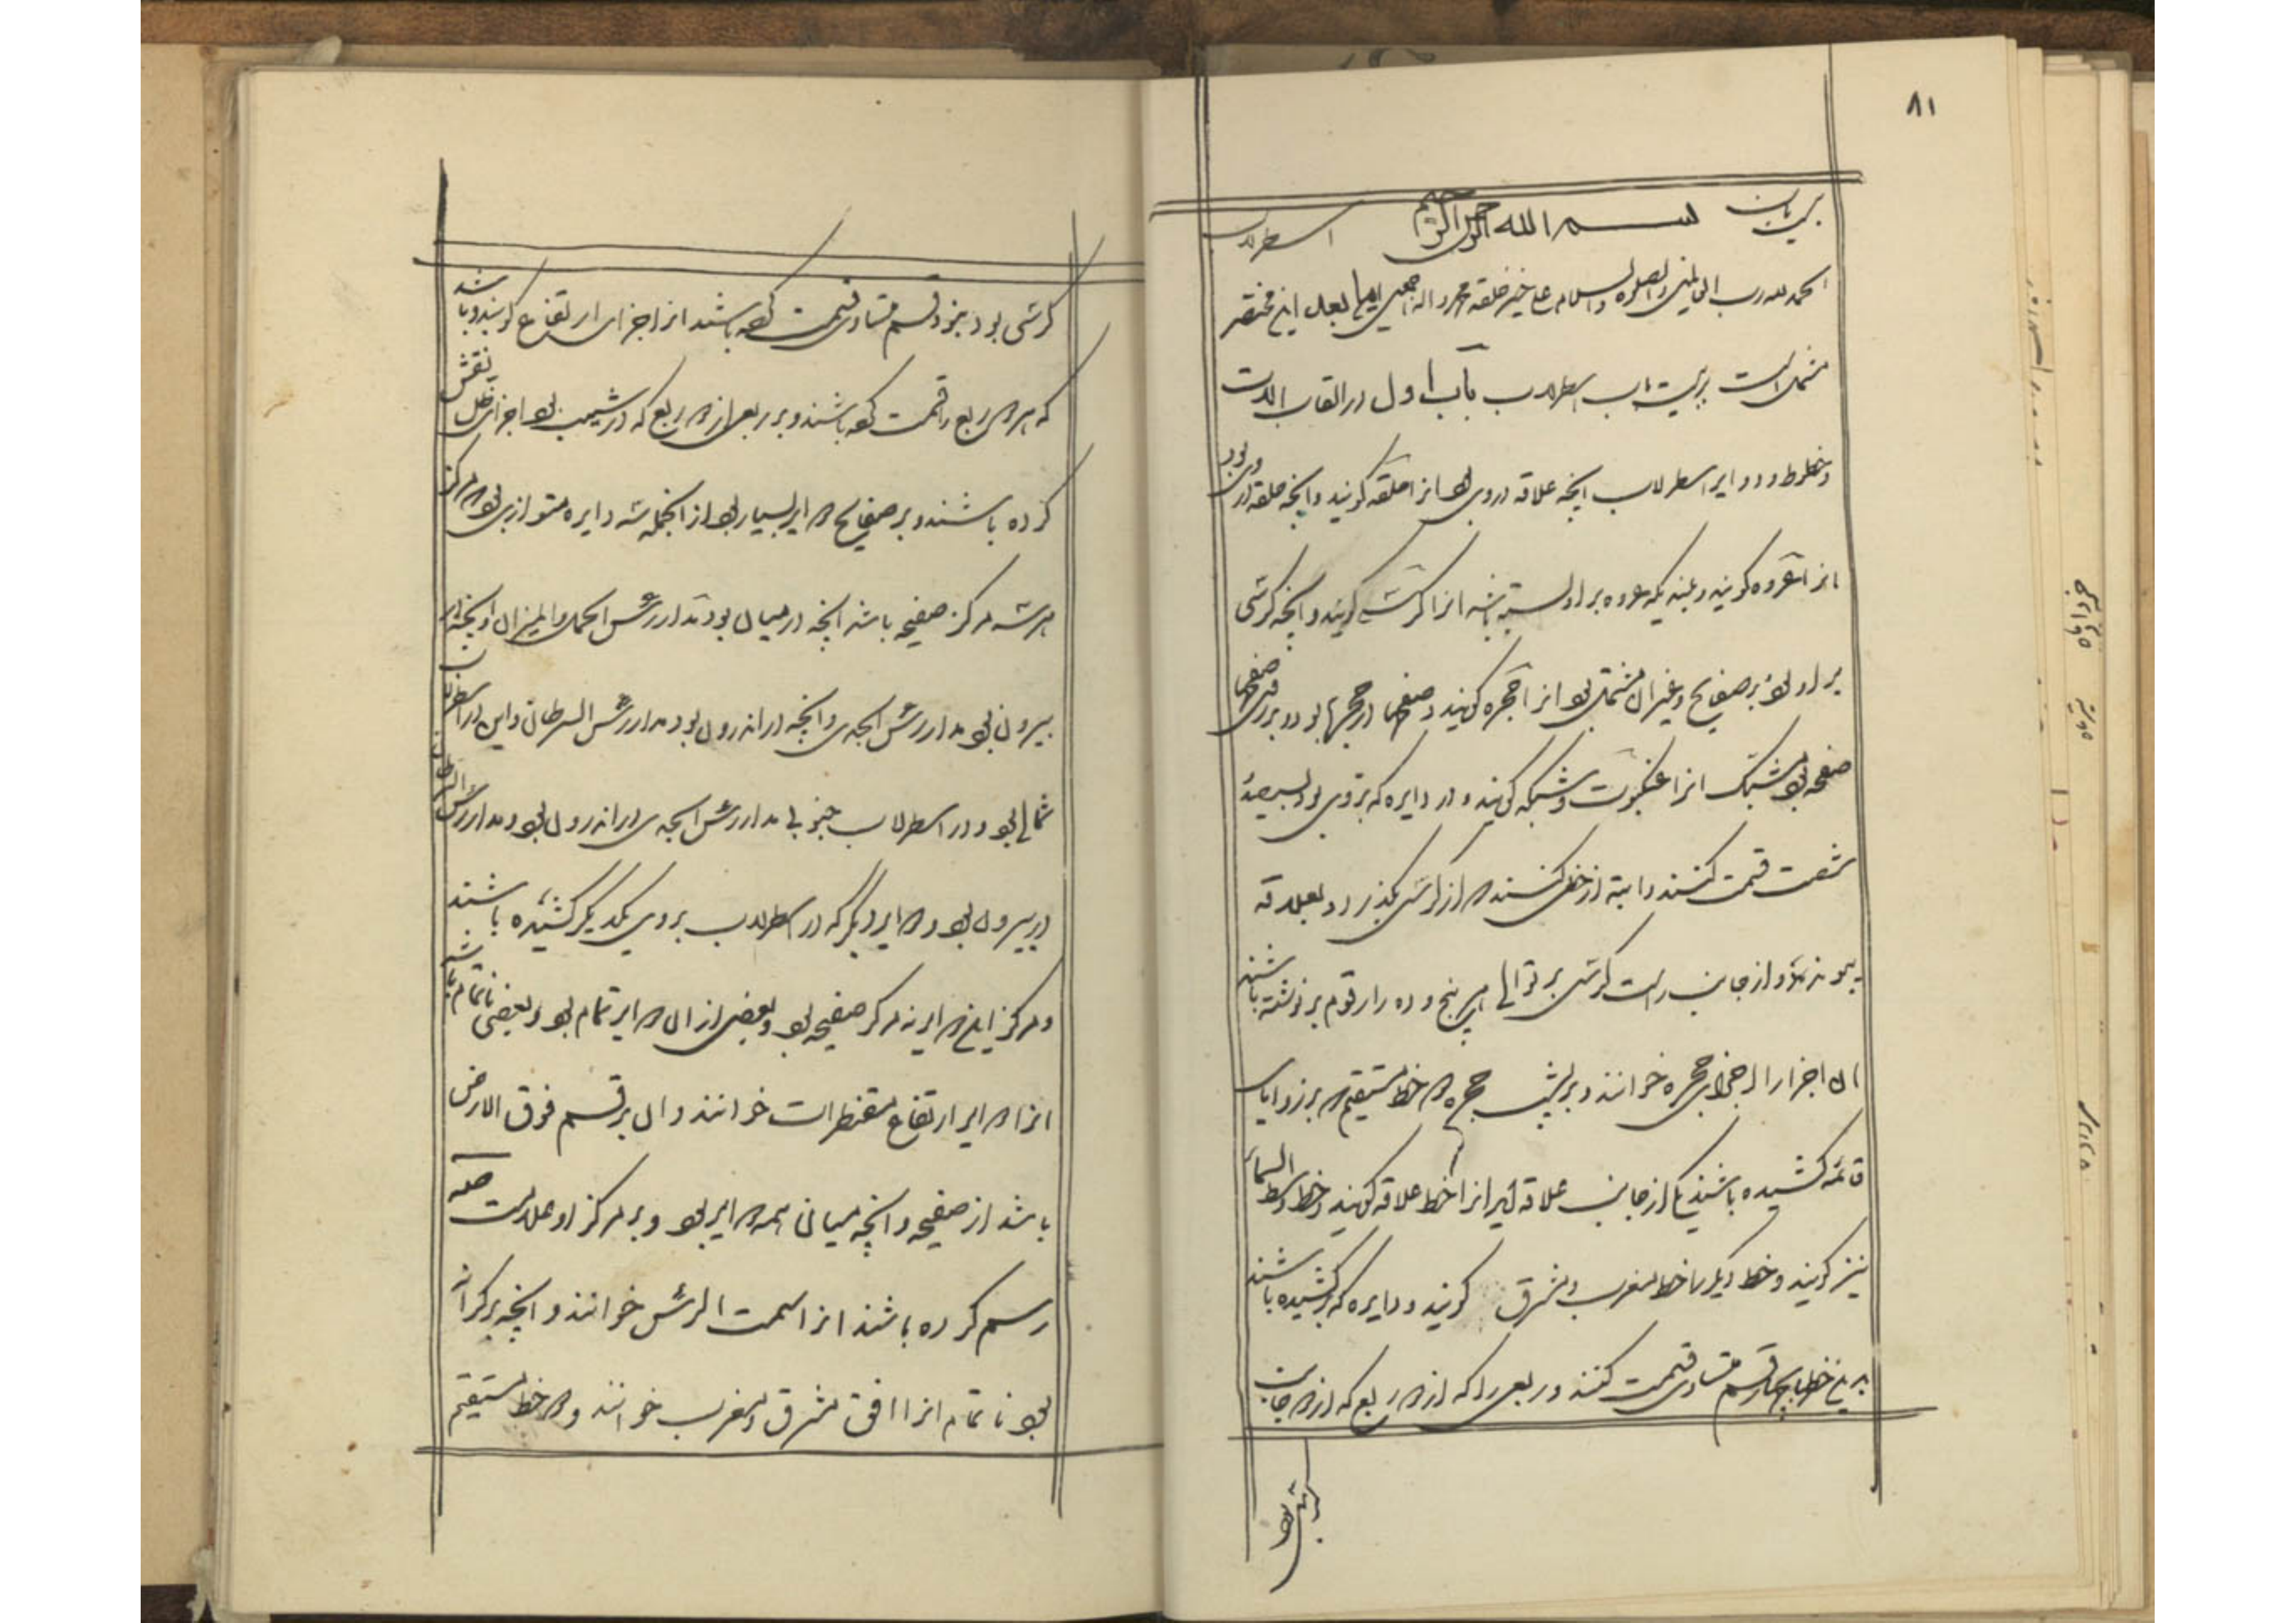 ۸۱
بیست باب بسم الله الرحمن الرحیم اسطرلاب
الحمد لله رب العالمین والصلوة والسلام علی خیر خلقه محمد و اله اجمعین اما بعد این مختصر
مشتمل است بر بیست باب اسطرلاب باب اول در القاب الات
و خطوط و دوایر اسطرلاب انچه علاقه در وی بود انرا حلقه گویند و انچه حلقه در وی بود
انرا عروه گویند و بلندیکه عروه بر او بسته باشد انرا کرسی گویند و انچه کرسی
بر او بود بر صفایح و غیر ان مشتمل بود انرا حجره گویند و صفیحها در حجره بود و بر روی صفیحها
صفیحه بود مشبک انرا عنکبوت و شبکه گویند و در دایره که بر وی بود بسیصد
شصت قسمت کنند و ابتدا از خطی کنند که از کرسی بگذرد و بعلاقه
پیوندد و از جانب راست کرسی بر توالی هر پنج و ده را رقوم بر نوشته باشند
ان اجزا را اجزای حجره خوانند و بر پشت حجره دو خط مستقیم بر زوایای
قائمه کشیده باشند یکی از جانب علاقه اید انرا خط علاقه گویند و خط وسط السماء
نیز گویند و خط دیگر را خط مغرب و مشرق گویند و دایره که کشیده باشند
بدین خطها بچهار قسم متساوی قسمت کنند و ربعی را که از دو ربع که از دو جانب
کرسی بود
کرسی بود بنود قسم متساوی قسمت کرده باشند انرا اجزای ارتفاع گویند و باشد
که هر دو ربع را قسمت کرده باشند و بر ربعی از دو ربع که در شیب بود اجزای ظل نقش
کرده باشند و بر صفایح دوایر بسیار بود از انجمله سه دایره متوازی بود که مرکز
هر سه مرکز صفیحه باشد انچه در میان بود مدار رأس الحمل و المیزان و انچه از
بیرون بود مدار رأس الجدی و انچه در اندرون بود مدار رأس السرطان و این در اسطرلاب
شمالی بود و در اسطرلاب جنوبی مدار رأس الجدی در اندرون بود و مدار رأس السرطان
در بیرون بود و دوایر دیگر که در اسطرلاب بر وی یکدیگر کشیده باشند
و مرکز این دوایر نه مرکز صفیحه بود و بعضی از ان دوایر تمام بود و بعضی ناتمام باشد
انرا دوایر ارتفاع مقنطرات خوانند و ان بر قسم فوق الارض
باشد از صفیحه و انچه میان همه دوایر بود و بر مرکز او علامت صه
رسم کرده باشند انرا سمت الرأس خوانند و انچه بر کرانه
بود ناتمام انرا افق مشرق و مغرب خوانند و دو خط مستقیم